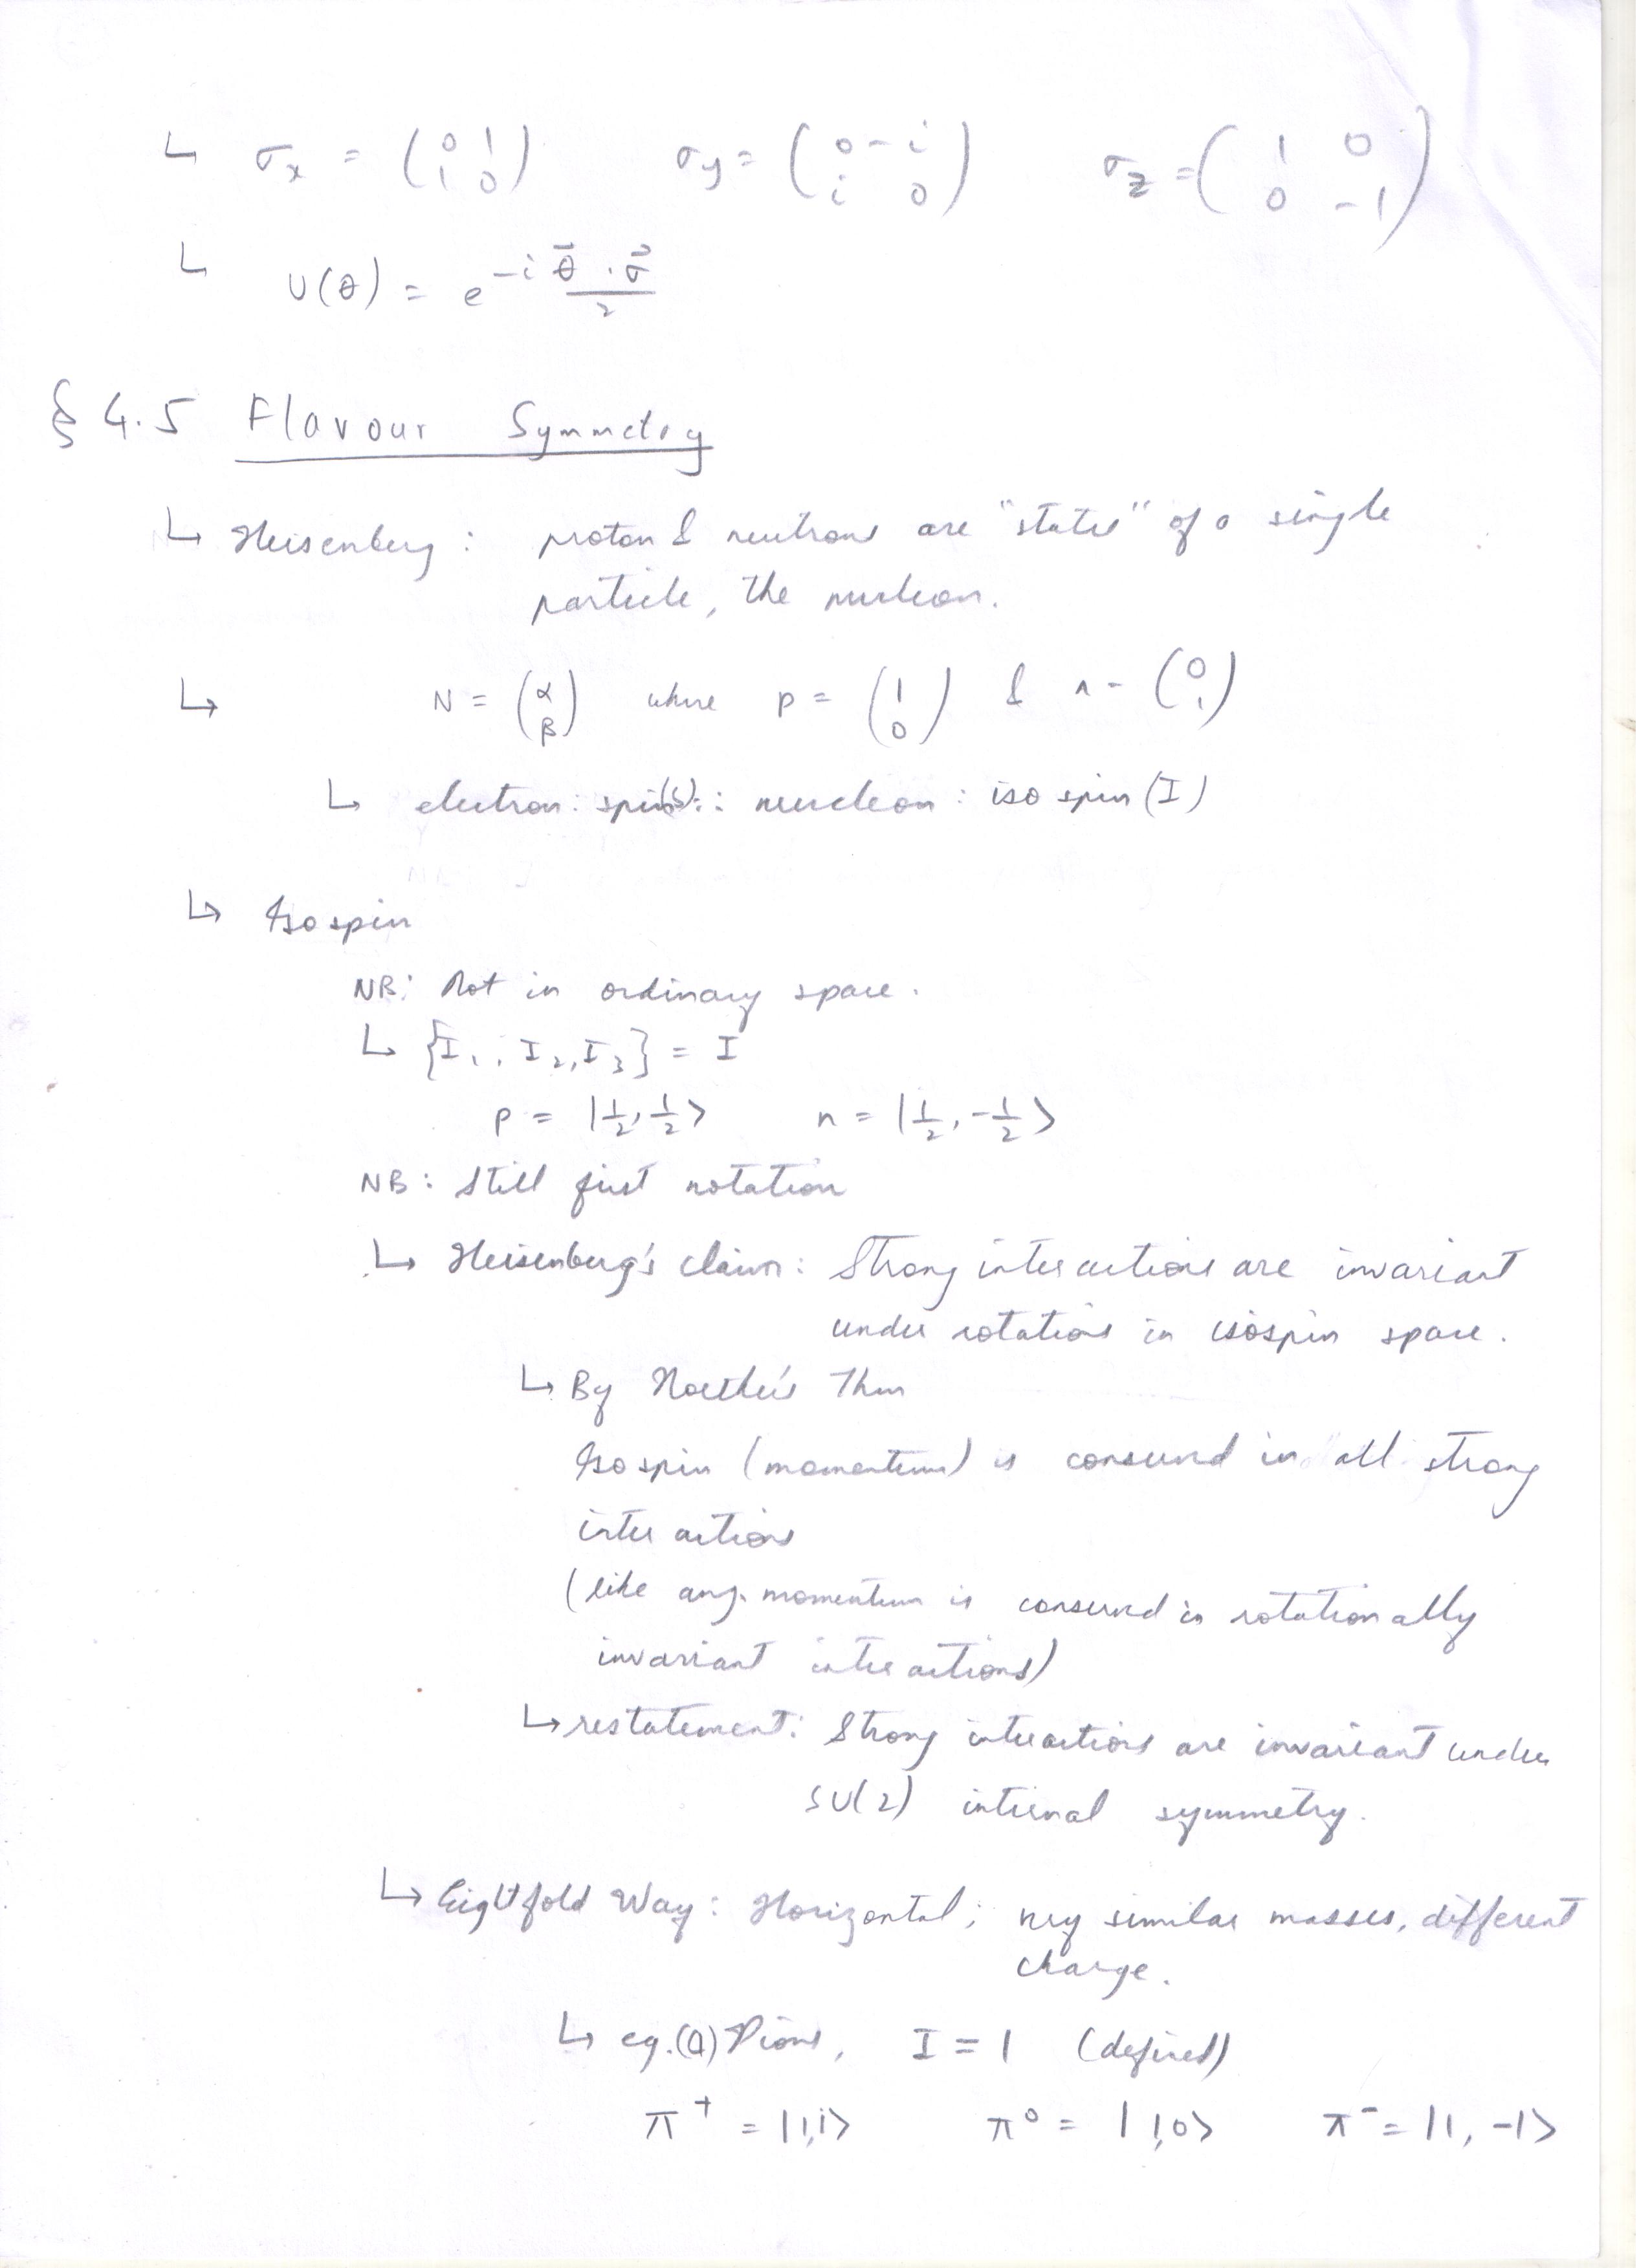 ↳ σx = (0 1; 1 0)    σy = (0 -i; i 0)    σz = (1 0; 0 -1)
↳ U(θ) = e^(-i θ⃗ · σ⃗ / 2)
§ 4.5 Flavour Symmetry
↳ Heisenberg : proton & neutrons are "states" of a single
particle, the nucleon.
↳ N = (α; β) where p = (1; 0) & n = (0; 1)
↳ electron : spin(s) :: nucleon : iso spin (I)
↳ Isospin
NB: Not in ordinary space.
↳ {I₁, I₂, I₃} = I
p = |½, ½>    n = |½, -½>
NB : Still just notation
↳ Heisenberg's claim : Strong interactions are invariant
under rotations in isospin space.
↳ By Noether's Thm
Isospin (momentum) is conserved in all strong
interactions
(like ang. momentum is conserved in rotationally
invariant interactions)
↳ restatement: Strong interactions are invariant under
SU(2) internal symmetry.
↳ Eightfold Way : Horizontal ; very similar masses, different
charge.
↳ eg. (a) Pions, I = 1 (defined)
π⁺ = |1,1>    π⁰ = |1,0>    π⁻ = |1, -1>